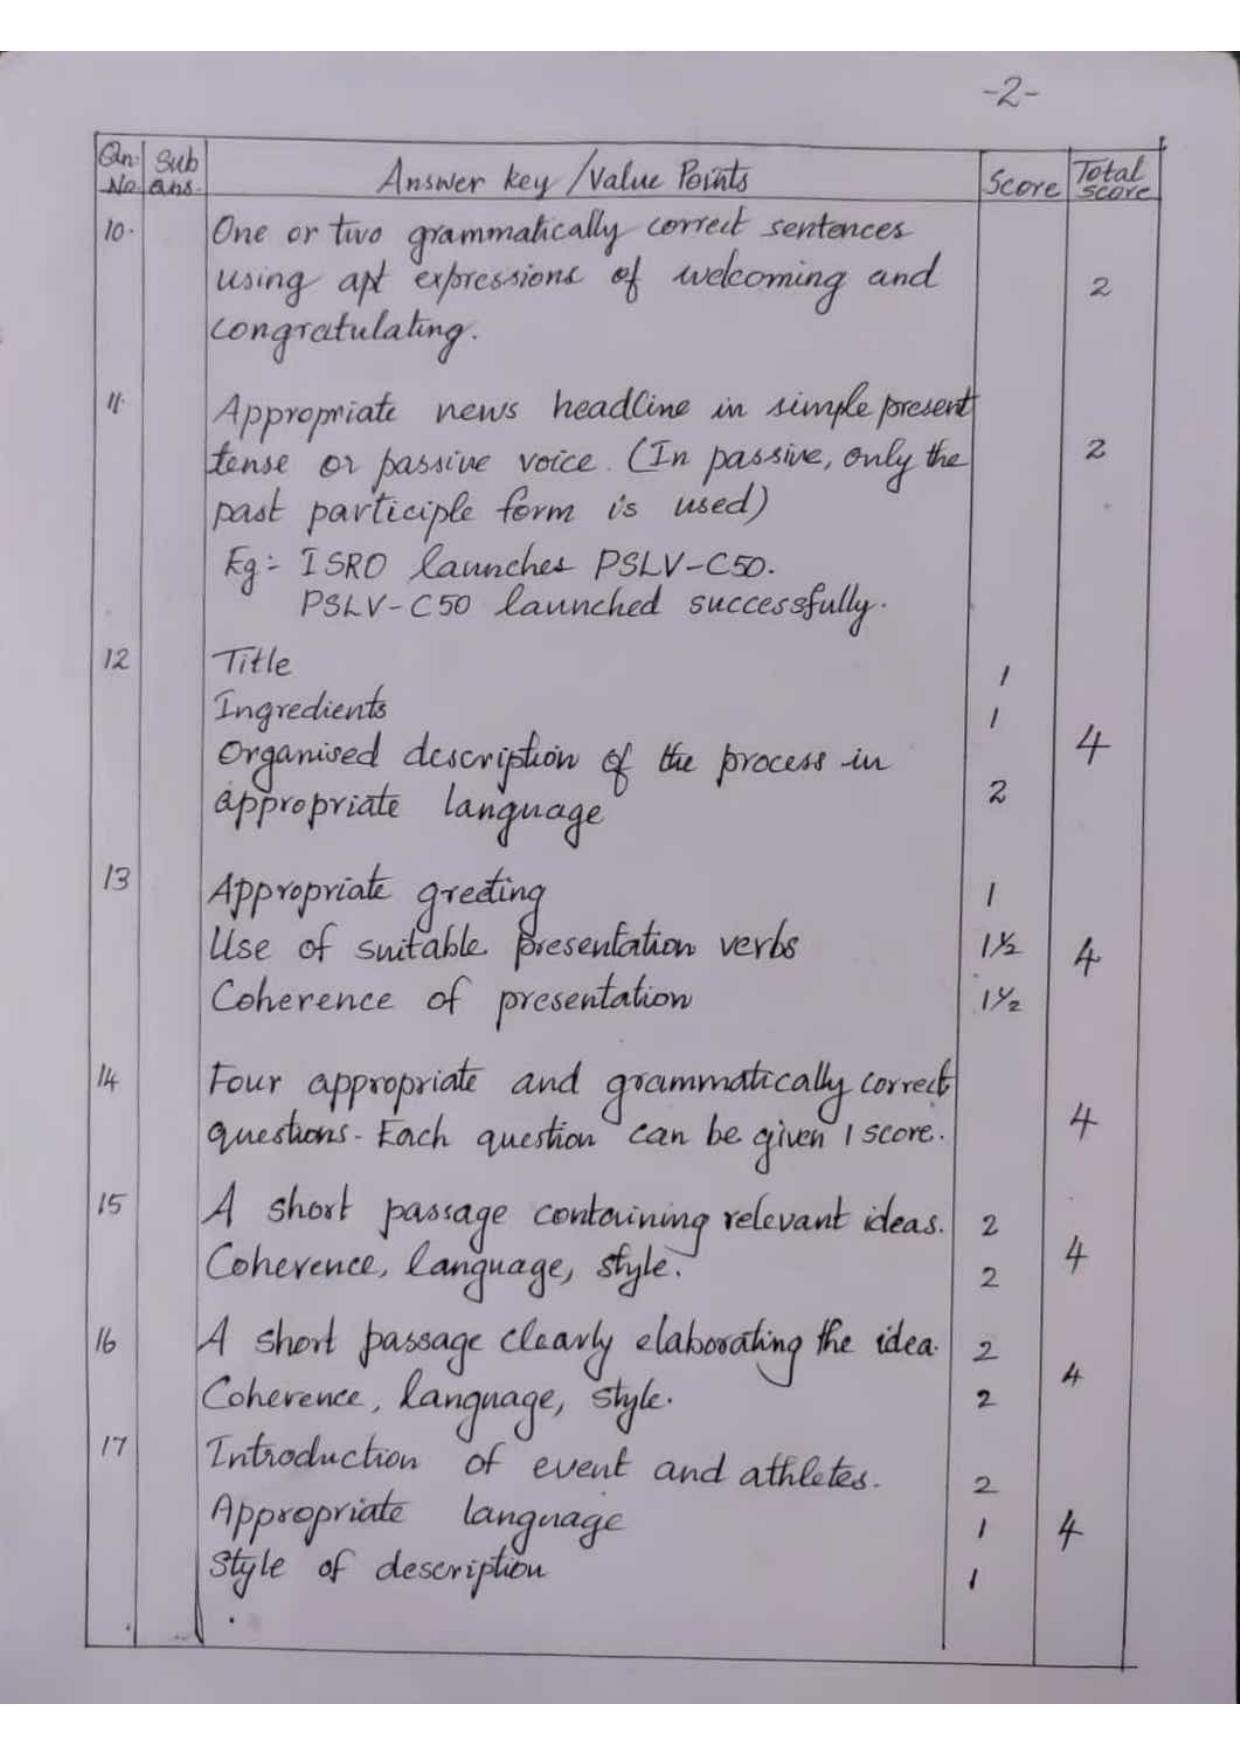 -2-
Qn. No. Sub ans. Answer key /Value Points Score Total score
10. One or two grammatically correct sentences
using apt expressions of welcoming and 2
congratulating.
11. Appropriate news headline in simple present
tense or passive voice. (In passive, only the 2
past participle form is used)
Eg:- ISRO launches PSLV-C50.
PSLV-C50 launched successfully.
12 Title 1
Ingredients 1
Organised description of the process in 4
appropriate language 2
13 Appropriate greeting 1
Use of suitable presentation verbs 1½ 4
Coherence of presentation 1½
14 Four appropriate and grammatically correct
questions. Each question can be given 1 score. 4
15 A short passage containing relevant ideas. 2
Coherence, language, style. 2 4
16 A short passage clearly elaborating the idea. 2
Coherence, language, style. 2 4
17 Introduction of event and athletes. 2
Appropriate language 1 4
Style of description 1